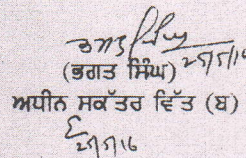 25/5/16
(ਭਗਤ ਸਿੰਘ)
ਅਧੀਨ ਸਕੱਤਰ ਵਿੱਤ (ਬ)